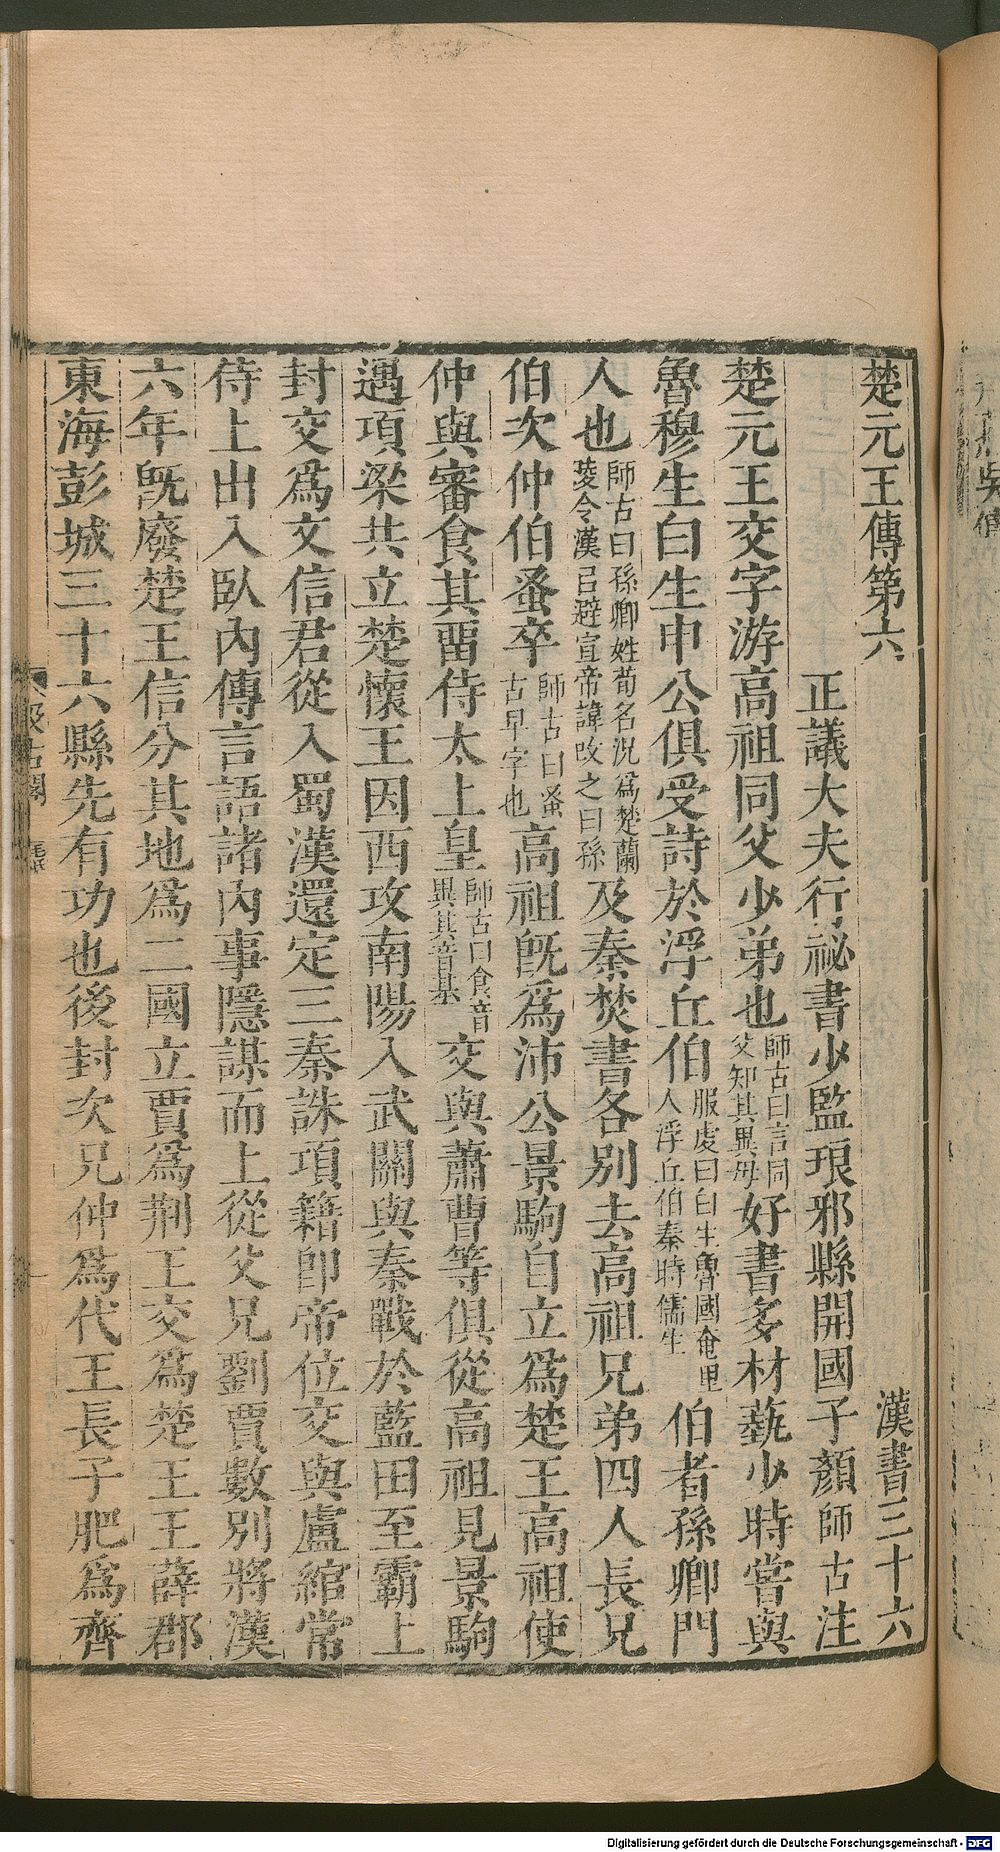 楚元王傳第六 漢書三十六
正議大夫行祕書少監琅邪縣開國子顏師古注
楚元王交字游高祖同父少弟也師古曰言同父知其異母好書多材藝少時嘗與
魯穆生白生申公俱受詩於浮丘伯服虔曰白生魯國奄里人浮丘伯秦時儒生伯者孫卿門
人也師古曰孫卿姓荀名況爲楚蘭陵令漢㠯避宣帝諱改之曰孫及秦焚書各別去高祖兄弟四人長兄
伯次仲伯蚤卒師古曰蚤古早字也高祖旣爲沛公景駒自立爲楚王高祖使
仲與審食其畱侍太上皇師古曰食音異其音基交與蕭曹等俱從高祖見景駒
遇項梁共立楚懷王因西攻南陽入武關與秦戰於藍田至霸上
封交爲文信君從入蜀漢還定三秦誅項籍卽帝位交與盧綰常
侍上出入臥內傳言語諸內事隱謀而上從父兄劉賈數別將漢
六年旣廢楚王信分其地爲二國立賈爲荆王交爲楚王王薛郡
東海彭城三十六縣先有功也後封次兄仲爲代王長子肥爲齊
汲古閣
Digitalisierung gefördert durch die Deutsche Forschungsgemeinschaft - DFG